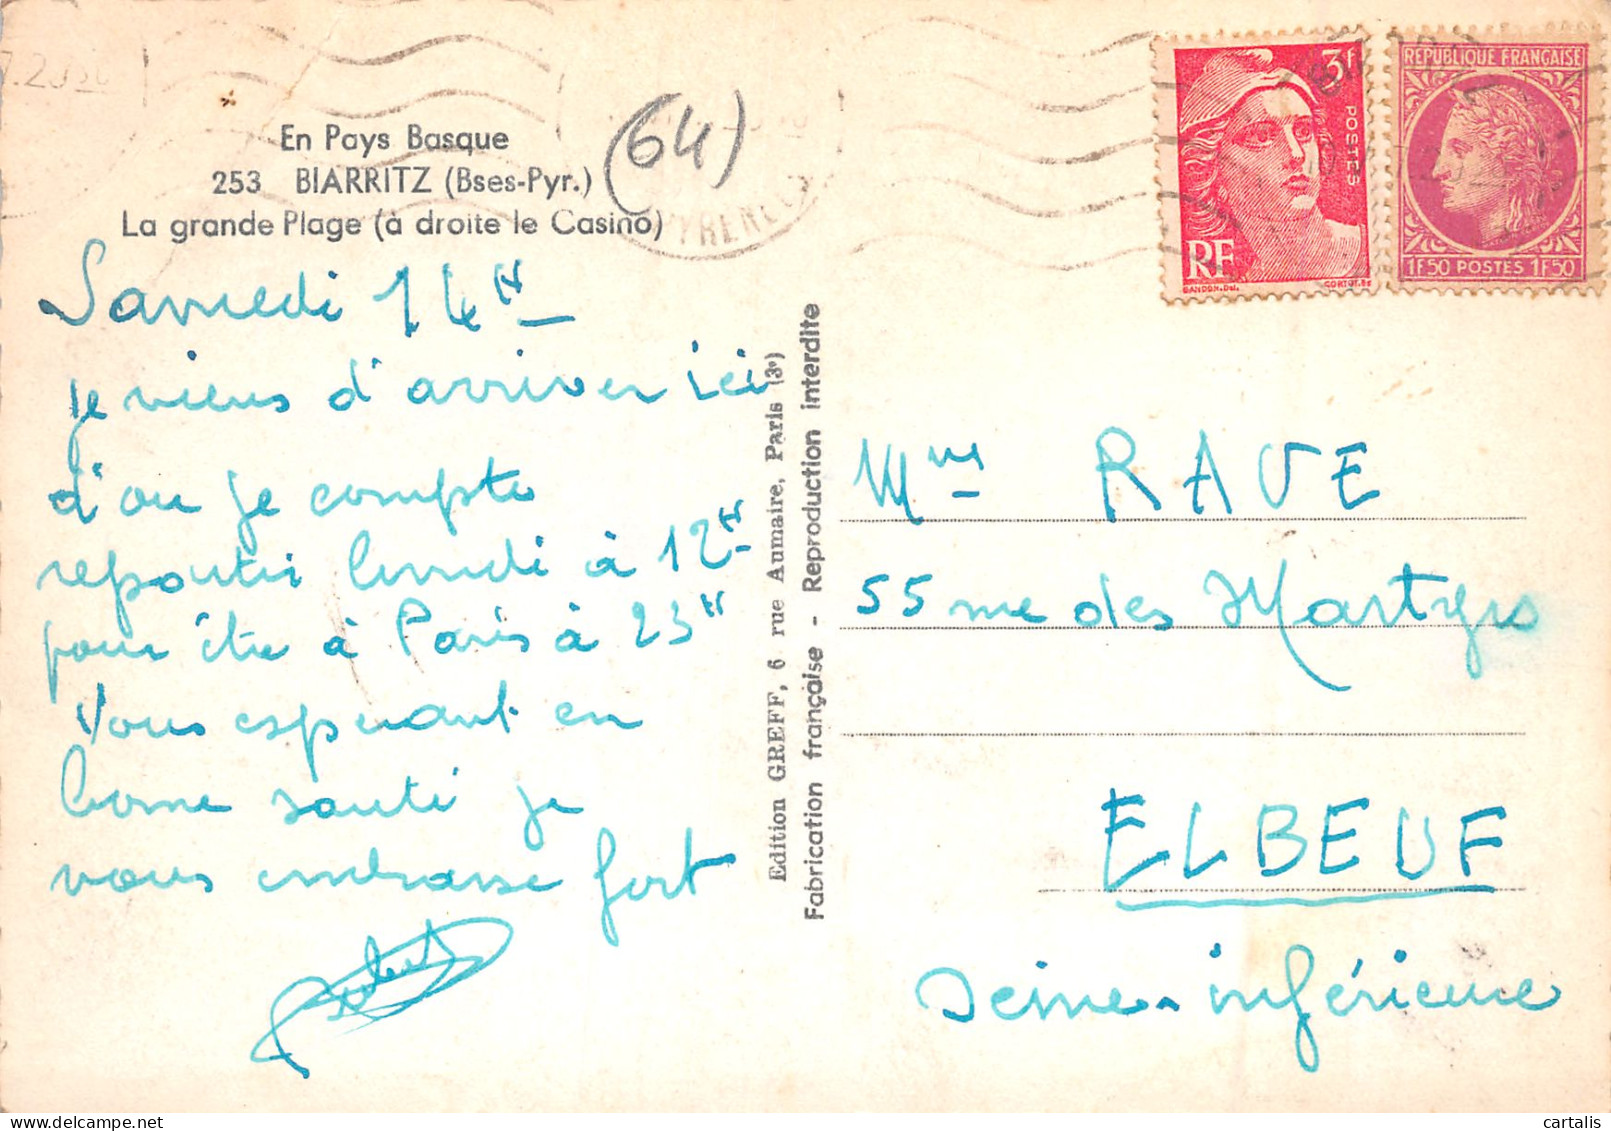 En Pays Basque
253 BIARRITZ (Bses-Pyr.)
La grande Plage (à droite le Casino)
(64)
Samedi 14H
Je viens d'arriver ici
d'ou je compte
repartir lundi à 12H
pour être à Paris à 23H
Vous espérant en
bonne santé je
vous embrasse fort
Edition GREFF, 6 rue Aumaire, Paris (3e)
Fabrication française - Reproduction interdite
3f
POSTES
RF
GANDON.Del.
CORTOT.Sc
REPUBLIQUE FRANÇAISE
1F50 POSTES 1F50
Mme RAVE
55 rue des Martyrs
ELBEUF
Seine-inférieure
cartalis